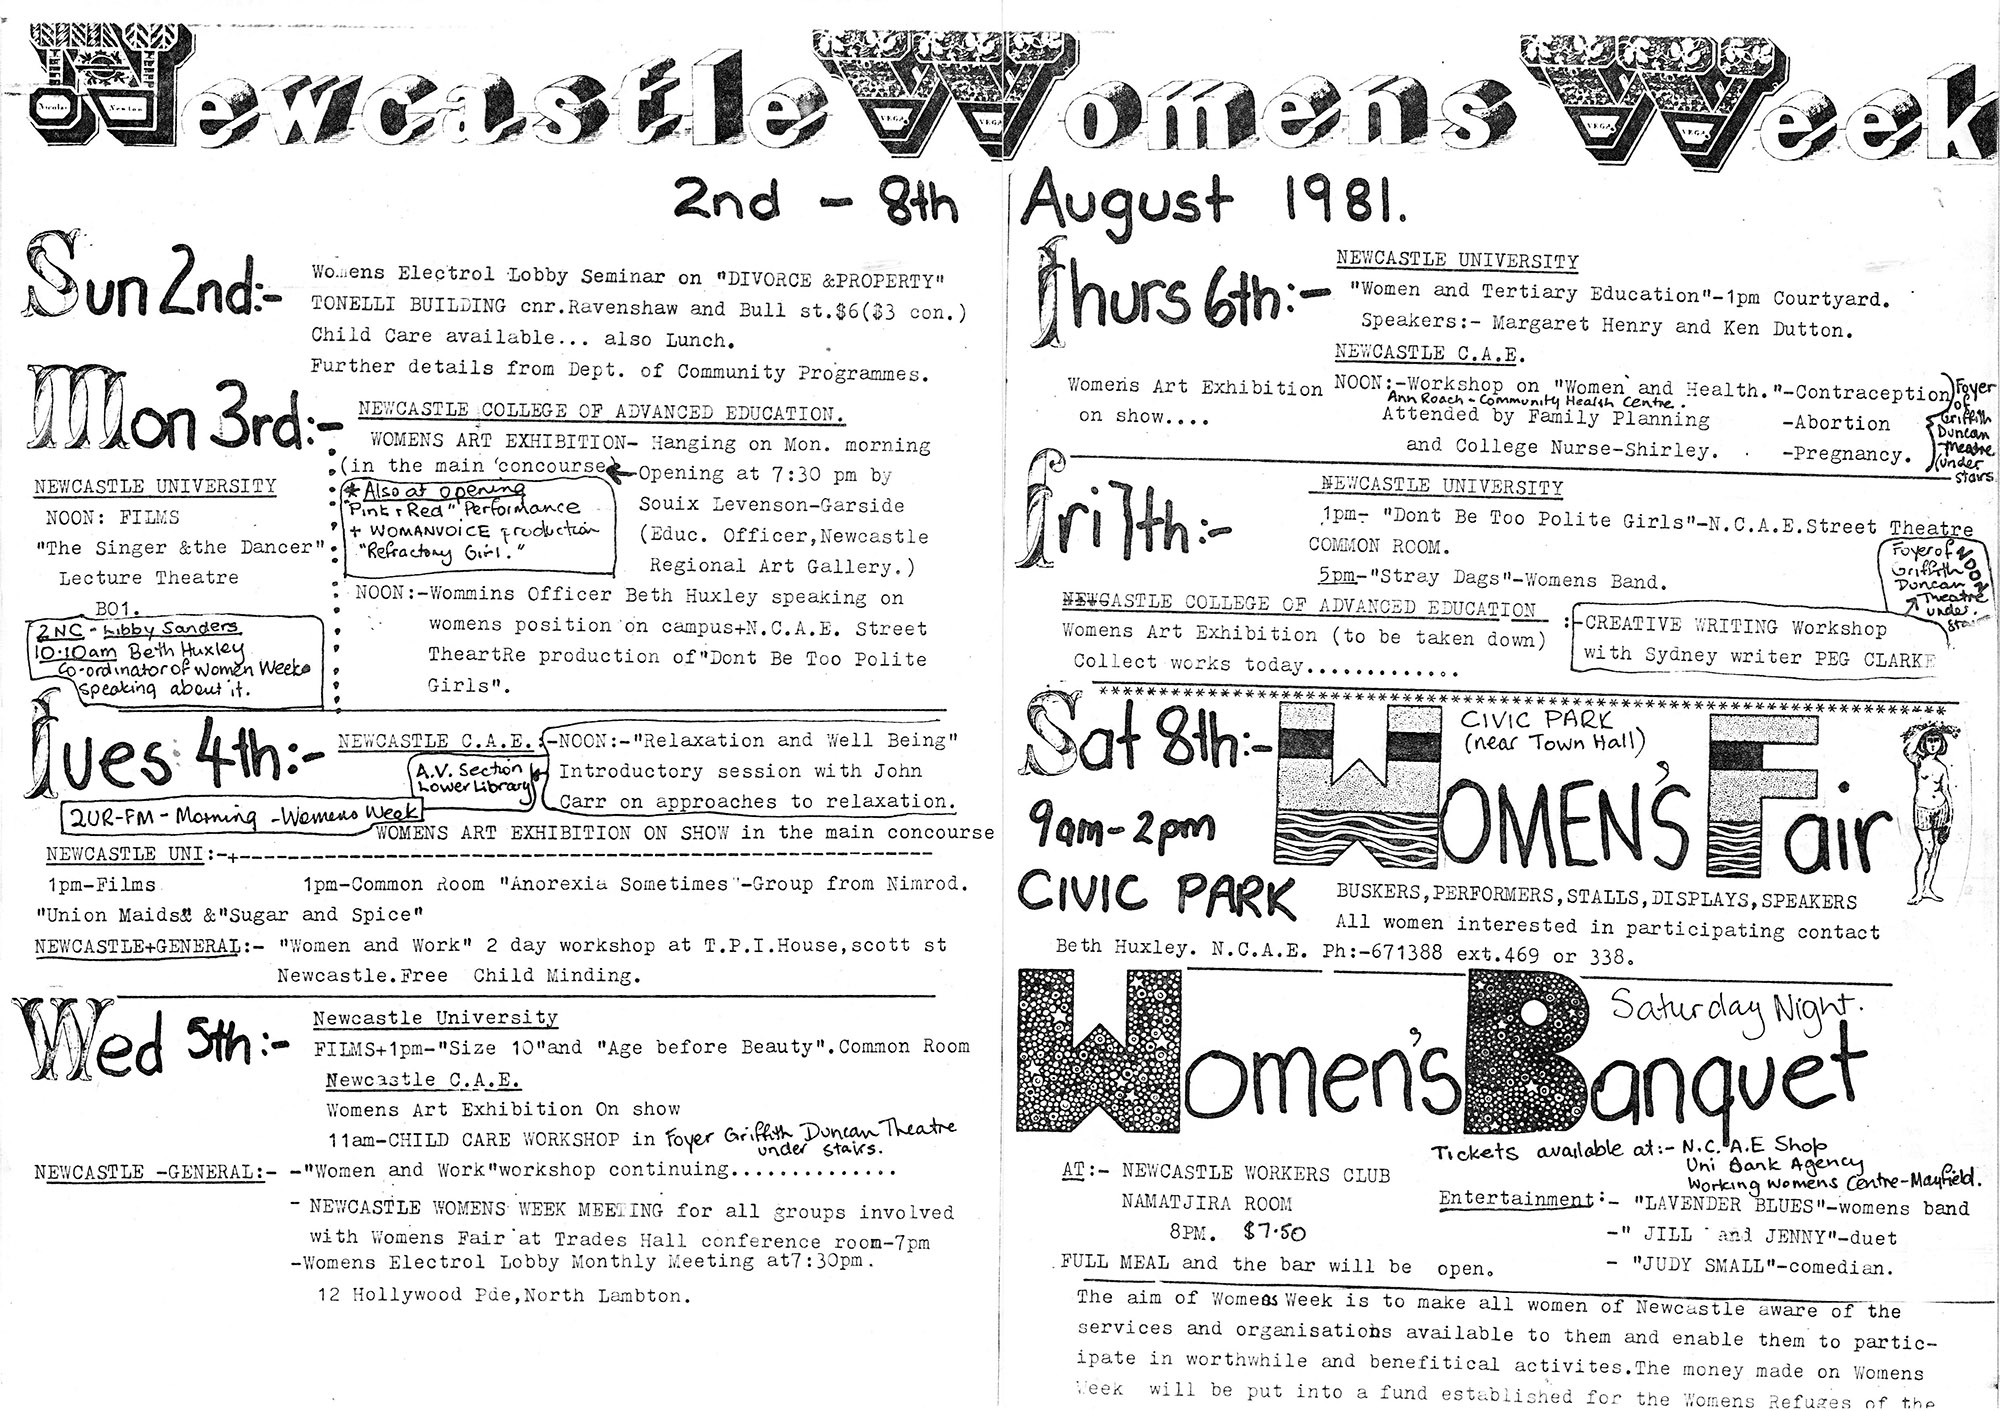 Newcastle Womens Week
2nd - 8th August 1981.
Sun 2nd:-
Womens Electrol Lobby Seminar on "DIVORCE &PROPERTY"
TONELLI BUILDING cnr.Ravenshaw and Bull st.$6($3 con.)
Child Care available... also Lunch.
Further details from Dept. of Community Programmes.
Mon 3rd:-
NEWCASTLE COLLEGE OF ADVANCED EDUCATION.
WOMENS ART EXHIBITION- Hanging on Mon. morning
(in the main concourse)
Opening at 7:30 pm by
Souix Levenson-Garside
(Educ. Officer,Newcastle
Regional Art Gallery.)
*Also at opening
"Pink + Red" Performance
+ WOMANVOICE production
"Refractory Girl."
NOON:-Wommins Officer Beth Huxley speaking on
womens position on campus+N.C.A.E. Street
TheartRe production of"Dont Be Too Polite
Girls".
NEWCASTLE UNIVERSITY
NOON: FILMS
"The Singer &the Dancer"
Lecture Theatre
BO1.
2NC - Libby Sanders
10.10am Beth Huxley
Co-ordinator of Women Week
speaking about it.
Tues 4th:-
NEWCASTLE C.A.E.:-NOON:-"Relaxation and Well Being"
Introductory session with John
Carr on approaches to relaxation.
A.V. Section
Lower Library
2UR-FM - Morning - Womens Week
WOMENS ART EXHIBITION ON SHOW in the main concourse
NEWCASTLE UNI:-+-----------------------------------------------
1pm-Films 1pm-Common Room "Anorexia Sometimes"-Group from Nimrod.
"Union Maids" &"Sugar and Spice"
NEWCASTLE+GENERAL:- "Women and Work" 2 day workshop at T.P.I.House,scott st
Newcastle.Free Child Minding.
Wed 5th:-
Newcastle University
FILMS+1pm-"Size 10"and "Age before Beauty".Common Room
Newcastle C.A.E.
Womens Art Exhibition On show
11am-CHILD CARE WORKSHOP in Foyer Griffith Duncan Theatre
under stairs.
NEWCASTLE -GENERAL:- -"Women and Work"workshop continuing..............
- NEWCASTLE WOMENS WEEK MEETING for all groups involved
with Womens Fair at Trades Hall conference room-7pm
-Womens Electrol Lobby Monthly Meeting at7:30pm.
12 Hollywood Pde,North Lambton.
Thurs 6th:-
NEWCASTLE UNIVERSITY
"Women and Tertiary Education"-1pm Courtyard.
Speakers:- Margaret Henry and Ken Dutton.
NEWCASTLE C.A.E.
Womens Art Exhibition
on show....
NOON:-Workshop on "Women and Health."-Contraception
Ann Roach - Community Health Centre.
Attended by Family Planning -Abortion
and College Nurse-Shirley. -Pregnancy.
Foyer
of
Griffith
Duncan
Theatre
(under
stairs
Fri 7th:-
NEWCASTLE UNIVERSITY
1pm- "Dont Be Too Polite Girls"-N.C.A.E.Street Theatre
COMMON ROOM.
5pm-"Stray Dags"-Womens Band.
NEWCASTLE COLLEGE OF ADVANCED EDUCATION
Womens Art Exhibition (to be taken down)
Collect works today.............
:-CREATIVE WRITING Workshop
with Sydney writer PEG CLARKE
NOON
Foyer of
Griffith
Duncan
Theatre
under.
stairs
Sat 8th:-
9am-2pm
CIVIC PARK
CIVIC PARK
(near Town Hall)
WOMEN'S Fair
BUSKERS,PERFORMERS,STALLS,DISPLAYS,SPEAKERS
All women interested in participating contact
Beth Huxley. N.C.A.E. Ph:-671388 ext.469 or 338.
Women's Banquet
Saturday Night.
Tickets available at:- N.C.A.E Shop
Uni Bank Agency
Working Womens Centre-Mayfield.
AT:- NEWCASTLE WORKERS CLUB
NAMATJIRA ROOM
8PM. $7.50
FULL MEAL and the bar will be open.
Entertainment:- "LAVENDER BLUES"-womens band
-" JILL and JENNY"-duet
- "JUDY SMALL"-comedian.
The aim of Womens Week is to make all women of Newcastle aware of the
services and organisations available to them and enable them to partic-
ipate in worthwhile and benefitical activites.The money made on Womens
Week will be put into a fund established for the Womens Refuges of the